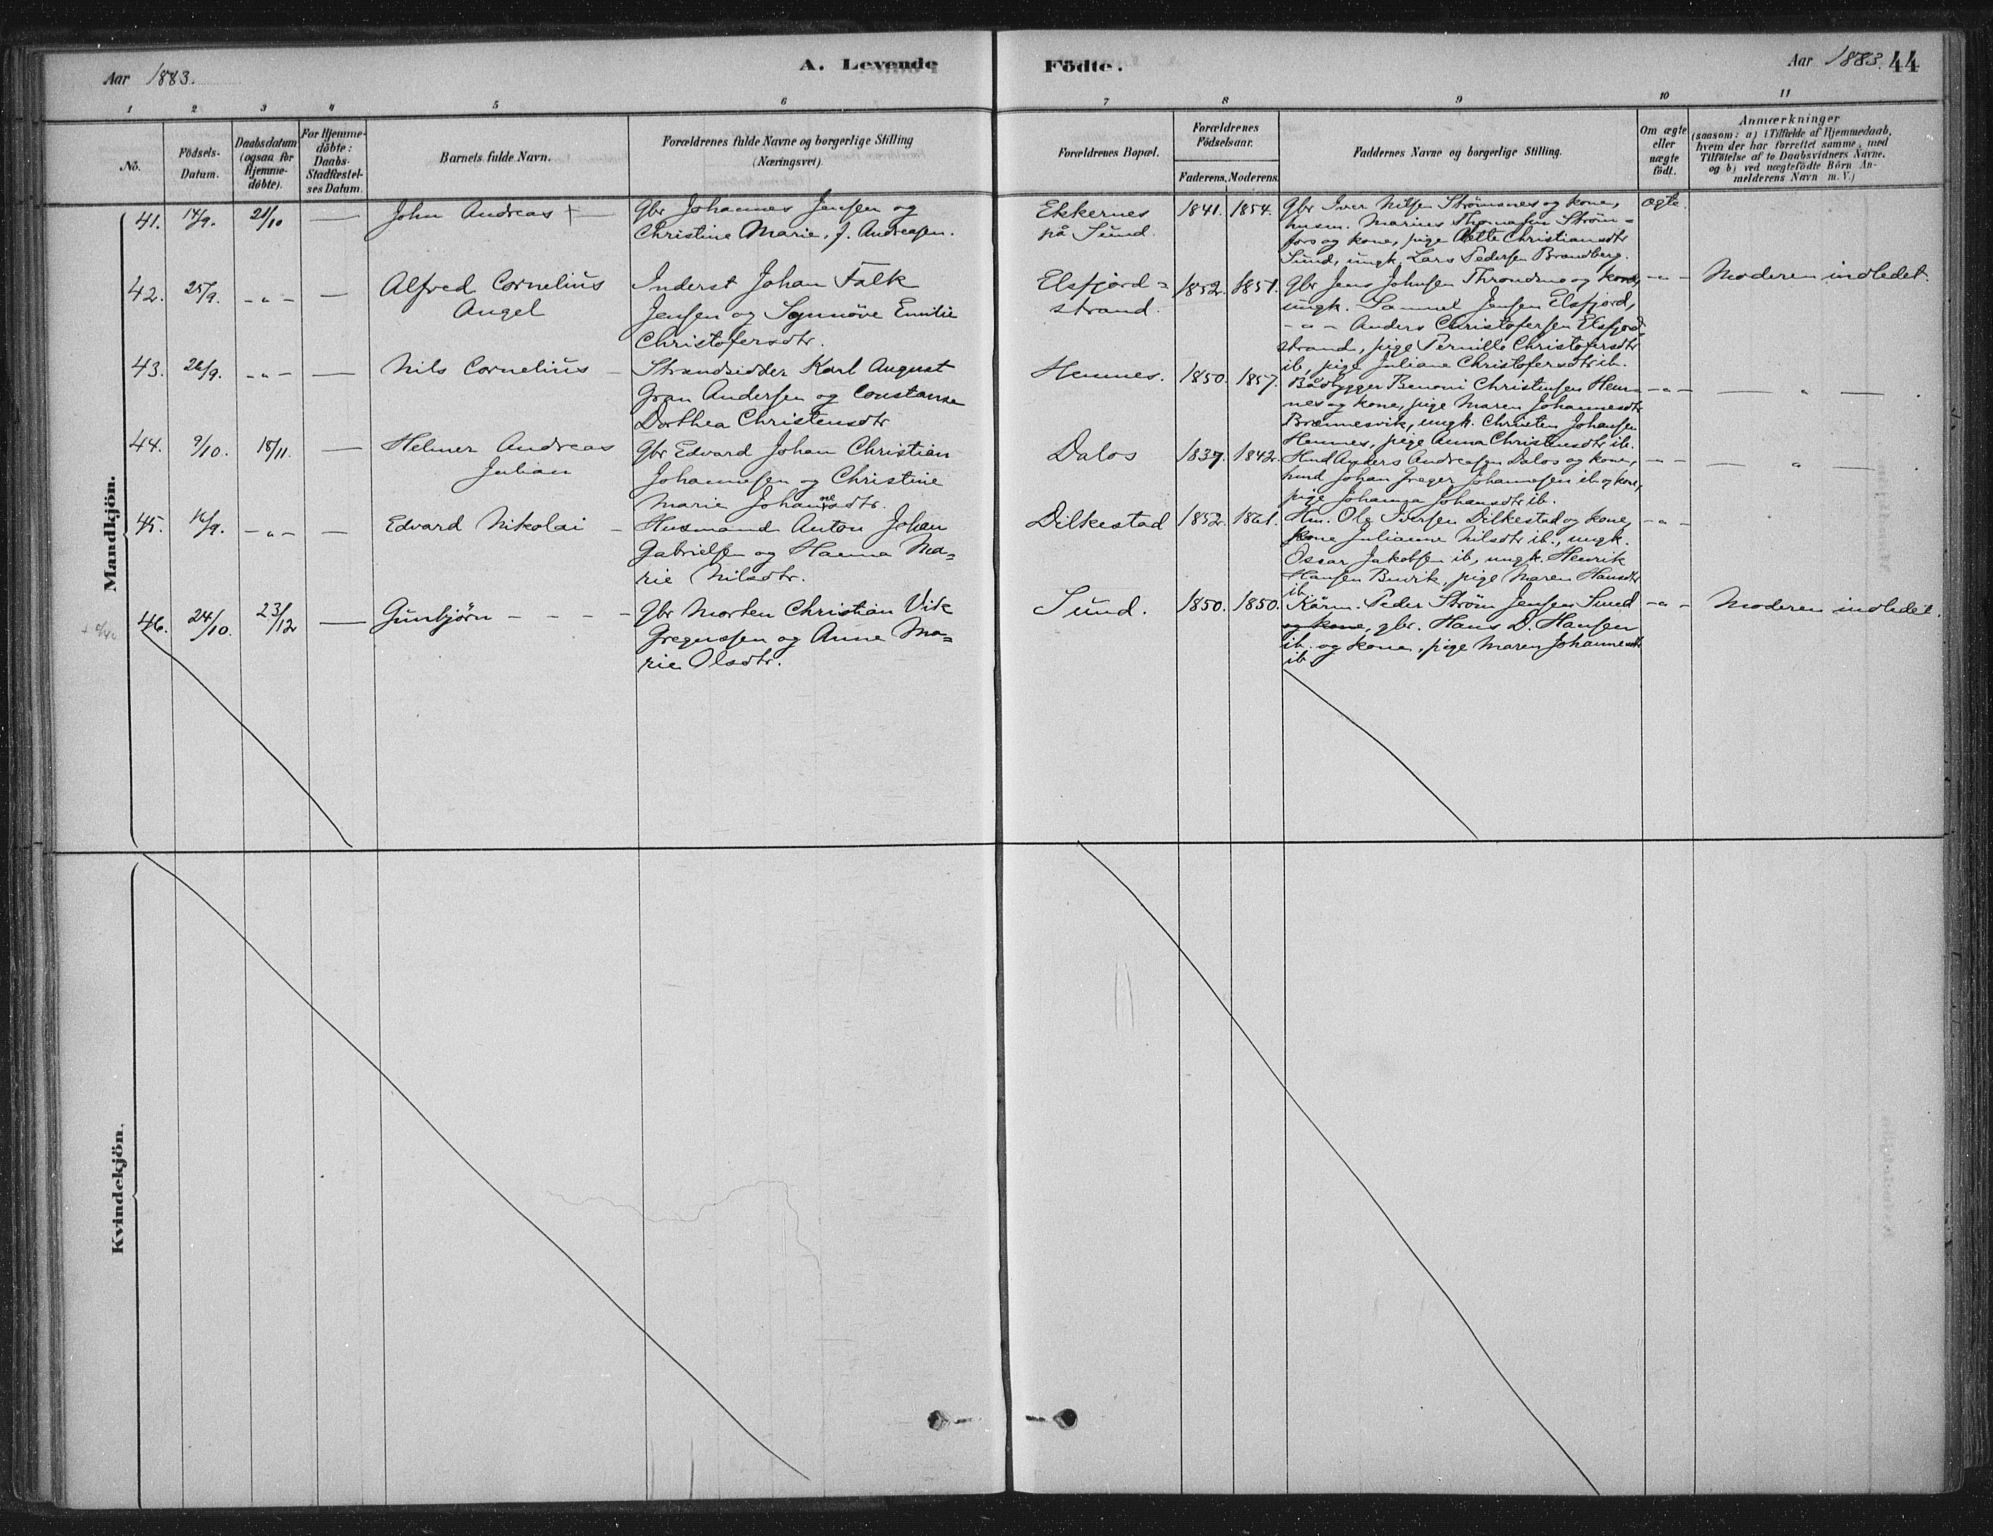 Aar 1883.
A. Levende
Födte.
Aar 1883. 44
1 2 3 4 5 6 7 8 9 10 11
No.
Födsels-Datum.
Daabsdatum (ogsaa for Hjemmedöbte).
For Hjemmedöbte: Daabs-Stadfæstelses Datum.
Barnets fulde Navn.
Forældrenes fulde Navne og borgerlige Stilling (Næringsvei).
Forældrenes Bopæl.
Forældrenes Födselsaar.
Faderens. Moderens.
Faddernes Navne og borgerlige Stilling.
Om ægte eller uægte födt.
Anmærkninger
(saasom: a) i Tilfælde af Hjemmedaab, hvem der har forrettet samme, med Tilföielse af to Daabsvidners Navne, og b) ved uægtefödte Börn Anmelderens Navn m. V.)
Mandkjön.
41. 14/9. 21/10 — John Andreas +—
Gbr Johannes Jensen og
Christine Marie, f. Andreasen.
Ekkernes
på Sund.
1841. 1854.
Gbr Iver Nilsen Strømsnes og kone,
husm. Marius Thomassen Strøm-
fors og kone, pige Mette Christiansdtr
Sund, ungk. Lars Pedersen Brandberg.
ægte.
42. 25/9. -"- — Alfred Cornelius
Angel
Inderst Johan Falk
Jensen og Synnøve Emilie
Christofersdtr.
Elsfjord-
strand.
1852. 1851.
Gbr Jens Johnsen Throndmo og kone,
ungk. Samuel Jensen Elsfjord,
-"- Anders Christofersen Elsfjord
strand, pige Pernille Christofersdtr
ib, pige Juliane Christofersdtr ib.
-"-
Moderen indledet.
43. 26/9. -"- — Nils Cornelius —
Strandsidder Karl August
Gran Andersen og Constanse
Dorthea Christensdtr
Hemnes. 1850. 1857.
Bådbygger Benoni Christensen Hem-
nes og kone, pige Maren Johannesdtr
Brennesvik, ungk. Christen Johansen
Hemnes, pige Anna Christensdtr ib.
-"- — " — .
44. 9/10. 18/11. — Helmer Andreas
Julian
Gbr Edvard Johan Christian
Johannesen og Christine
Marie Johannesdtr.
Dalos 1837. 1842.
Husm Anders Andreasen Dalos og kone,
husm Johan Greger Johannesen ib og kone,
pige Johanna Johansdtr ib.
-"- — " — .
45. 16/9. -"- — Edvard Nikolai —
Husmand Anton Johan
Gabrielsen og Hanna Ma-
rie Nilsdtr.
Dilkestad 1852. 1861.
Hm. Ole Iversen Dilkestad og kone,
kone Julianne Nilsdtr ib., ungk.
Oscar Jakobsen ib, ungk. Henrik
Hansen Burik, pige Maren Hansdtr
ib.
-"-
46. 24/10. 23/12 — Gunbjørn - - - -
Gbr Morten Christian Vik
Gregusen og Anne Ma-
rie Olsdtr.
Sund. 1850. 1850.
Kårm. Peder Strøm Jensen Sund
og kone, gbr. Hans D. Hansen
ib. og kone, pige Maren Johannesdtr
ib
-"-
Moderen indledet.
Kvindekjön.